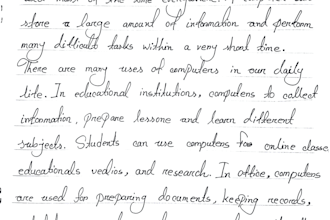 store a large amount of information and perform
many difficult tasks within a very short time.
There are many uses of computers in our daily
life. In educational institutions, computers to collect
information, prepare lessons and learn different
subjects. Students can use computers for online classe
educationals vedios, and research. In office, computers
are used for preparing documents, keeping records,